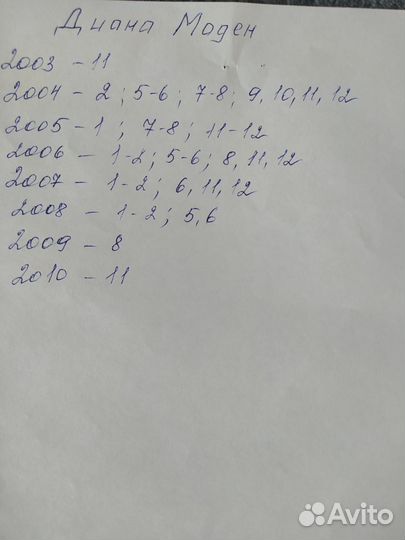 Диана Моден
2003 – 11
2004 – 2 ; 5-6 ; 7-8 ; 9, 10, 11, 12
2005 – 1 ; 7-8 ; 11-12
2006 – 1-2 ; 5-6 ; 8, 11, 12
2007 – 1-2 ; 6, 11, 12
2008 – 1-2 ; 5, 6
2009 – 8
2010 – 11
Avito